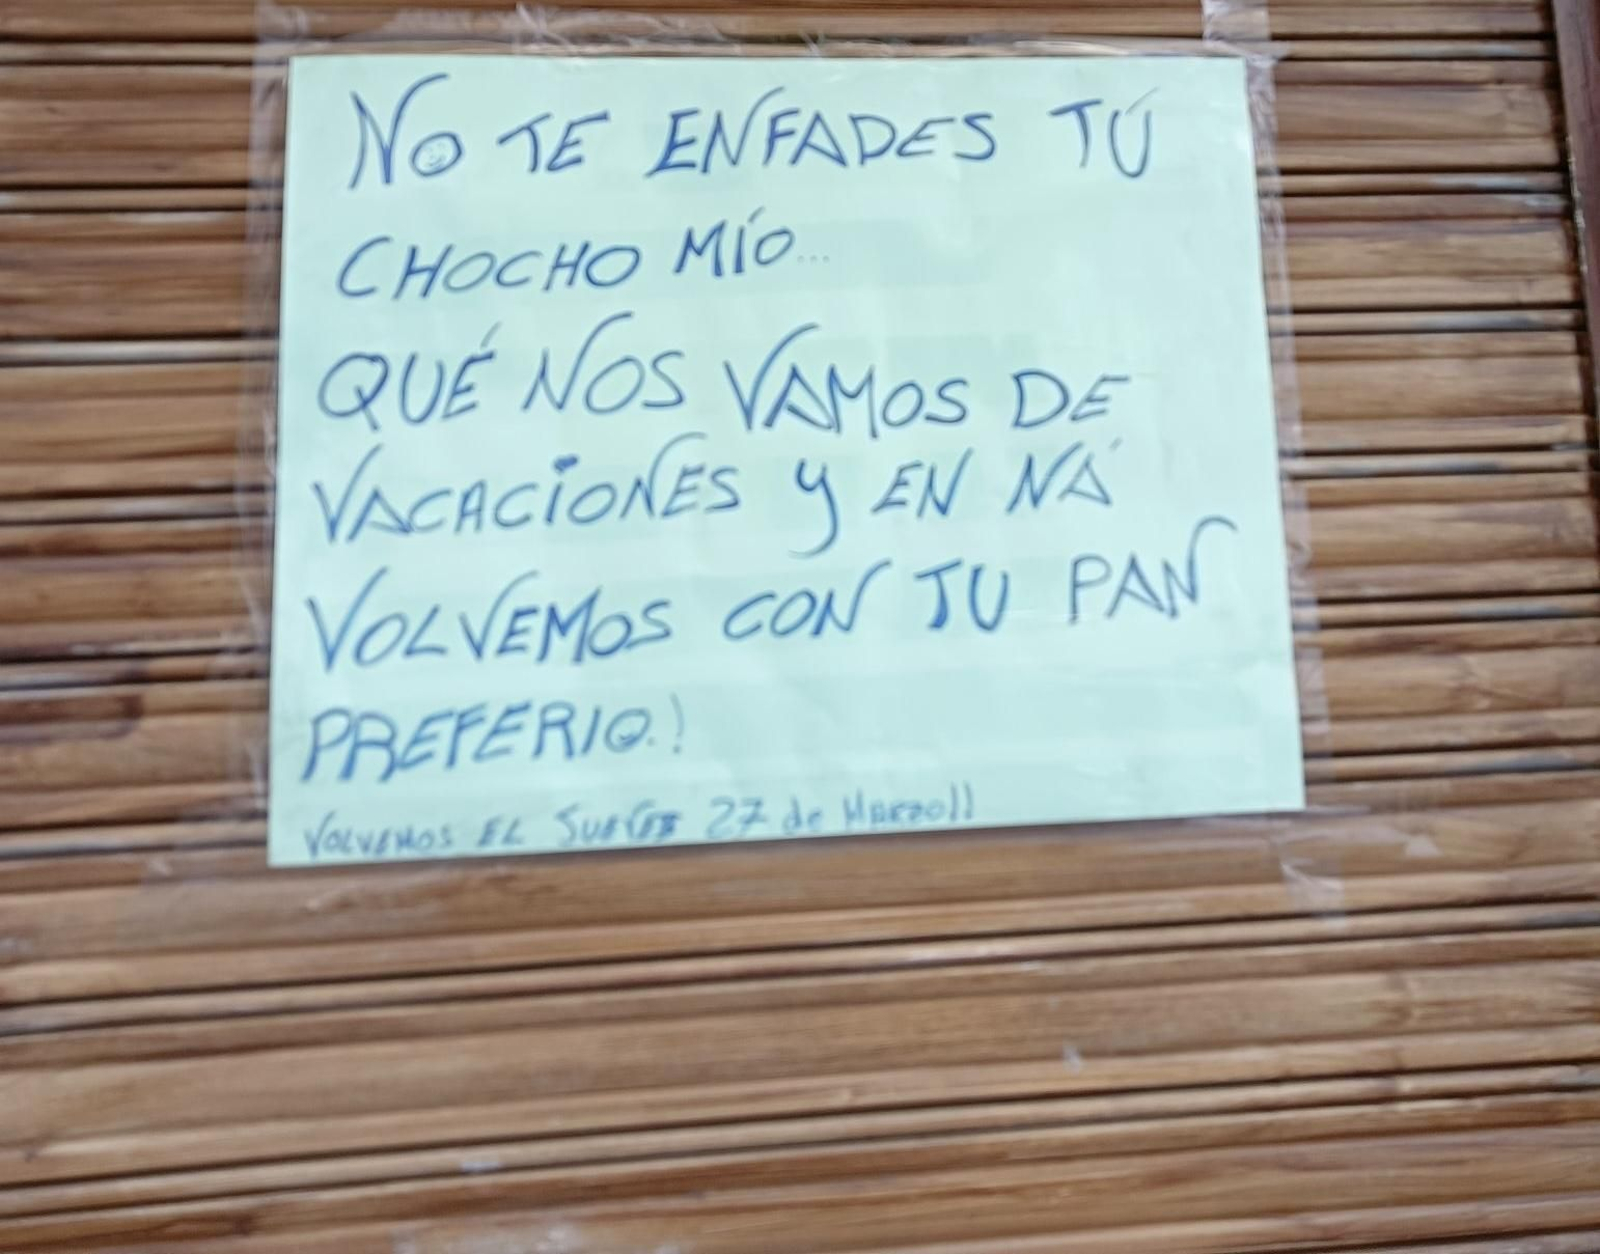 NO TE ENFADES TÚ
CHOCHO MÍO...
QUÉ NOS VAMOS DE
VACACIONES Y EN NÁ
VOLVEMOS CON TU PAN
PREFERIO.!
VOLVEMOS EL JUEVES 27 de MARZO!!